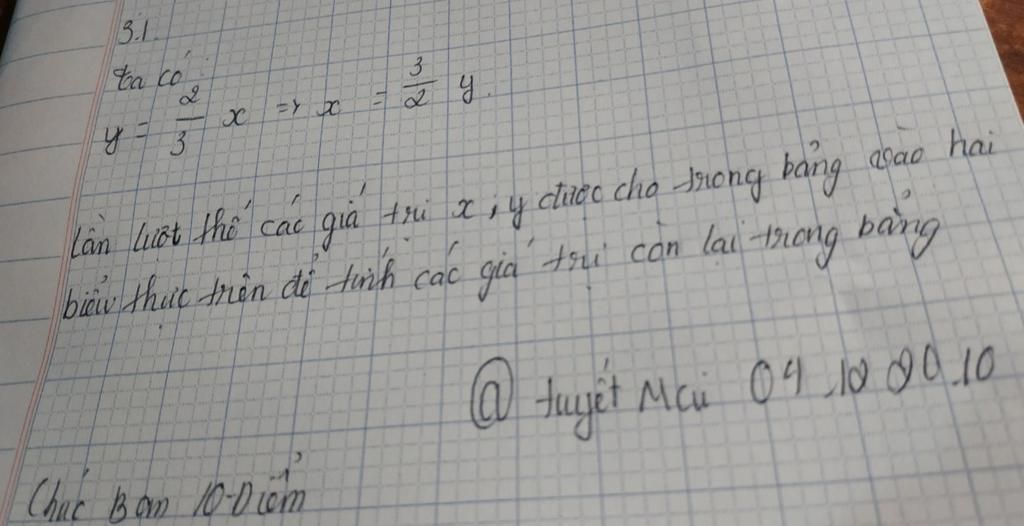 3.1.
ta có
y = 2/3 x => x = 3/2 y.
lần lượt thế các giá trị x, y được cho trong bảng vào hai
biểu thức trên để tính các giá trị còn lại trong bảng
@ tuyết Mai 04.10 10
Chúc Bạn 10 Điểm